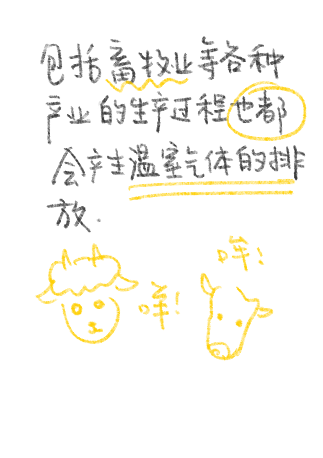 包括畜牧业等各种
产业的生产过程也都
会产生温室气体的排
放.
哞!
咩!